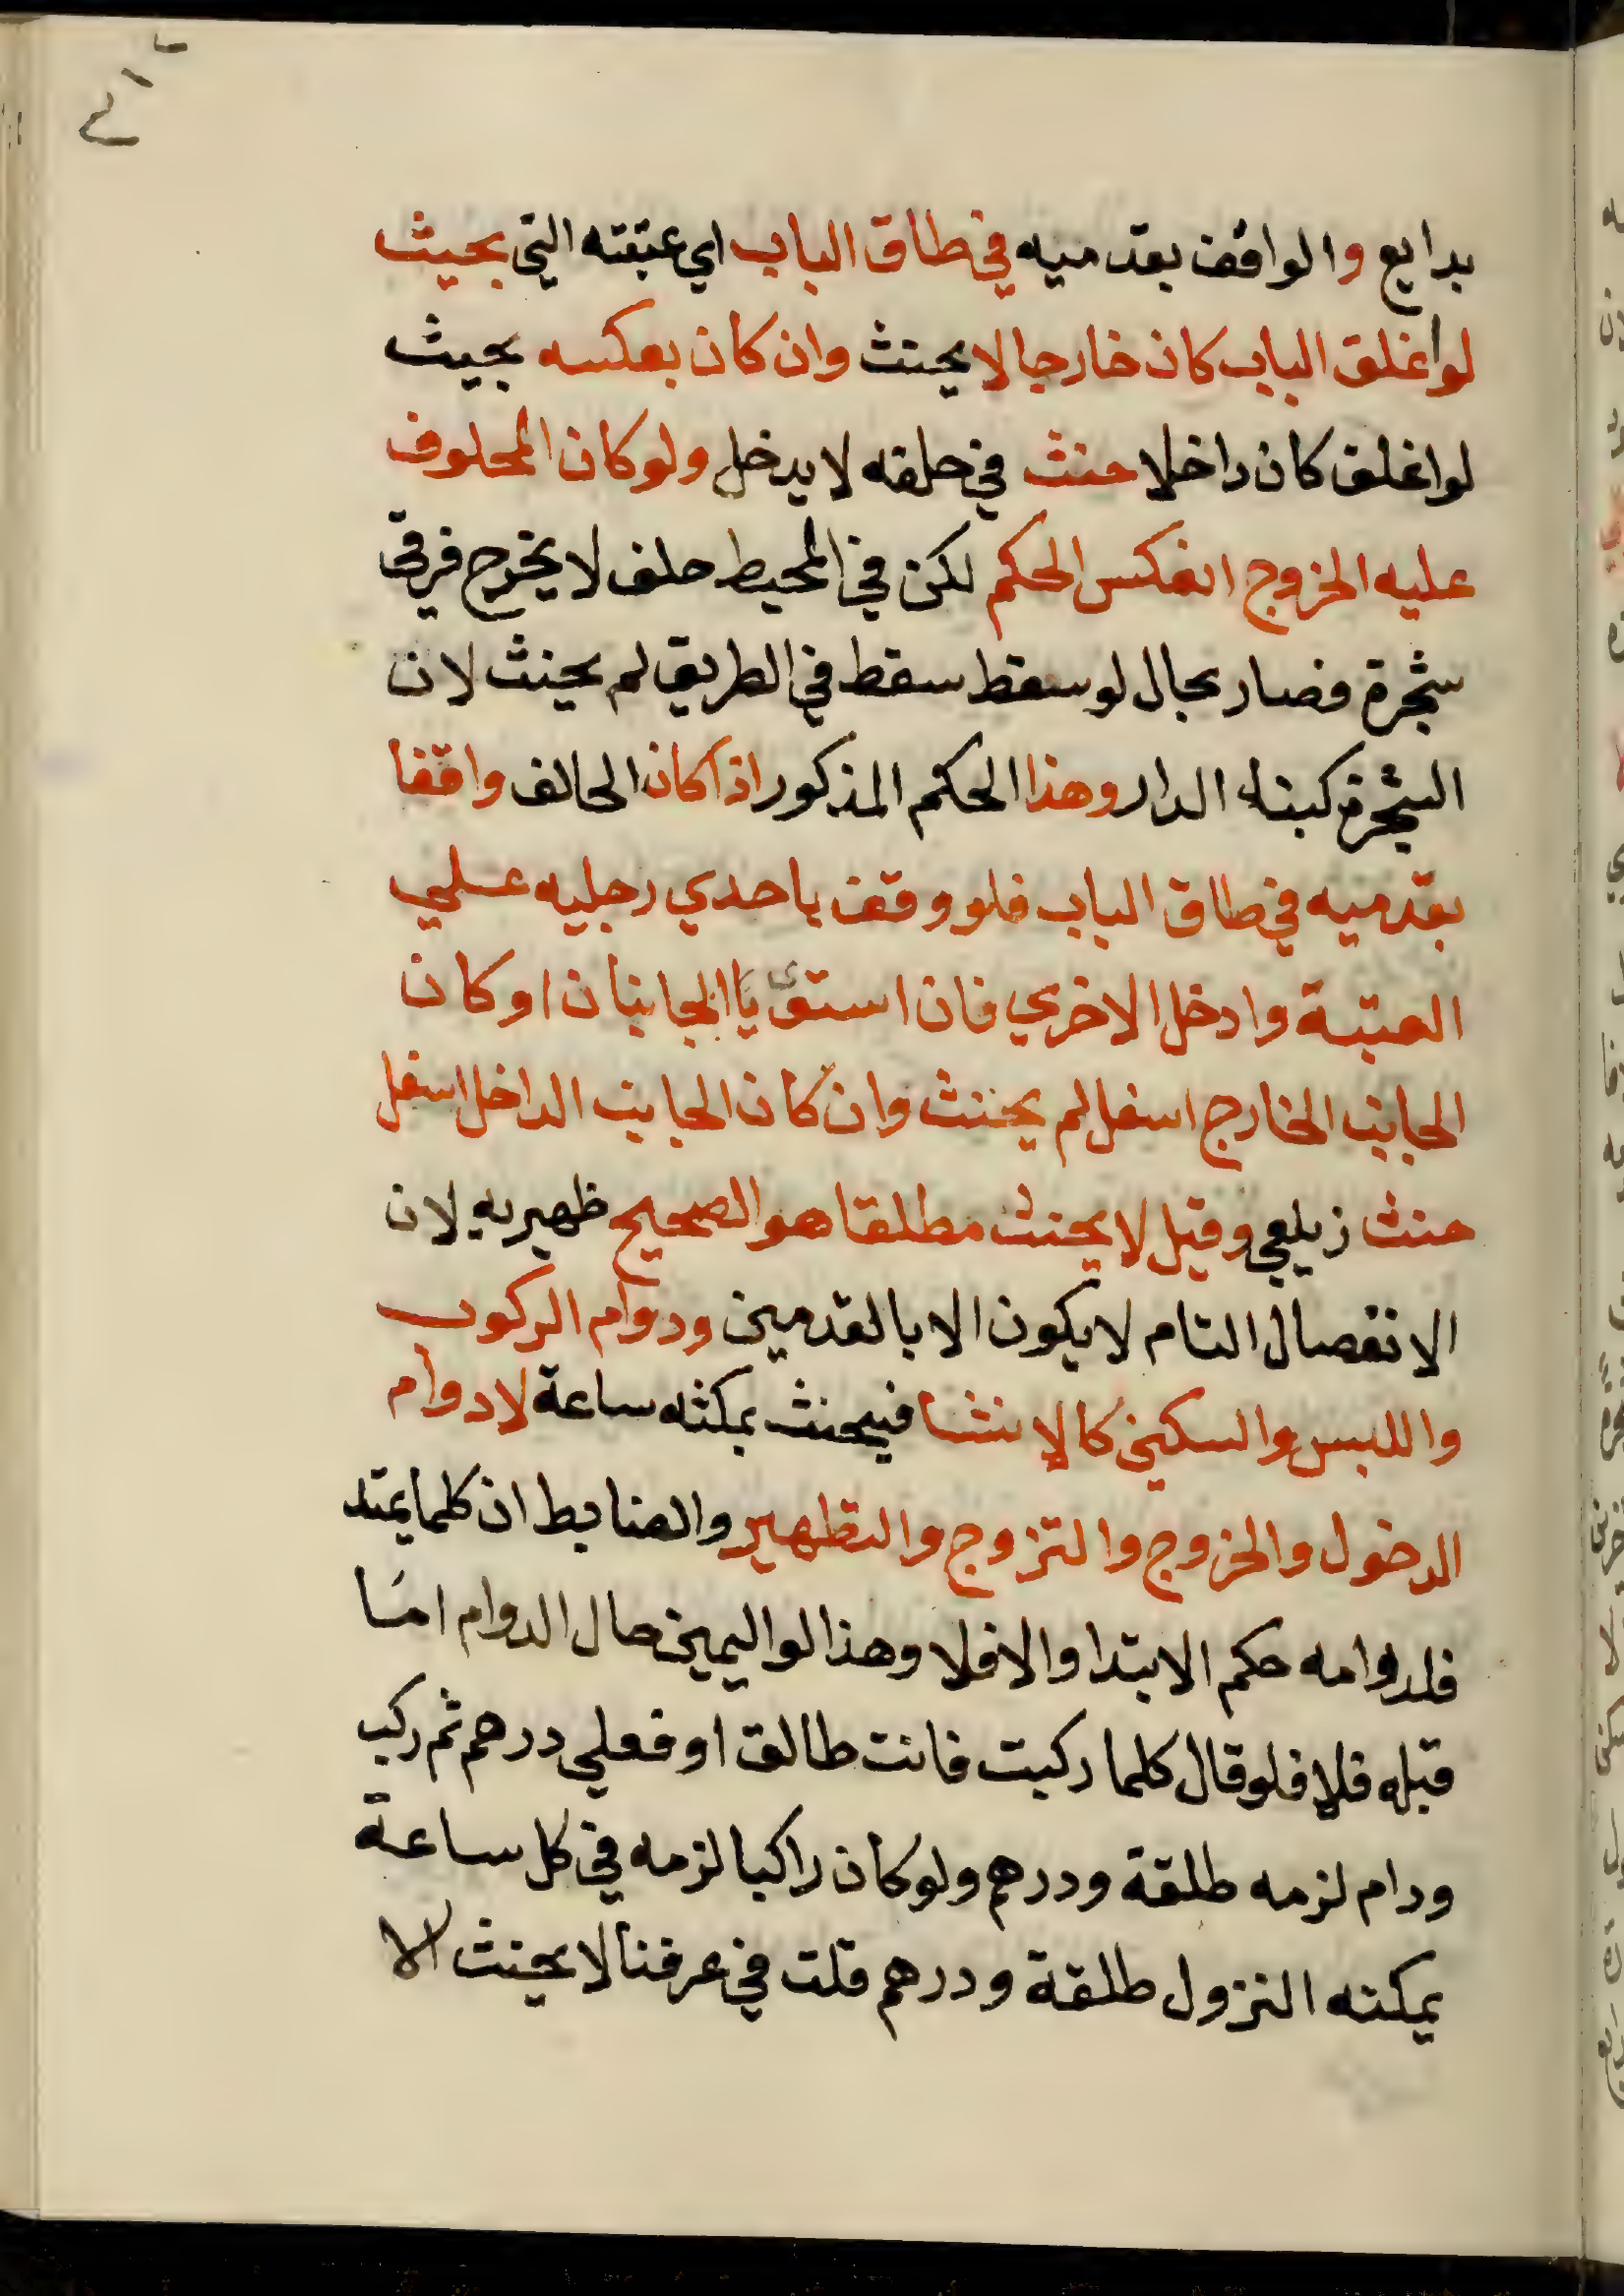 بدايع والواقف بقدميه في طاق الباب اي عتبته التي بحيث
لو اغلق الباب كان خارجا لا يحنث وان كان بعكسه بحيث
لو اغلق كان داخلا حنث في حلفه لا يدخل ولو كان المحلوف
عليه الخروج انعكس الحكم لكن في المحيط حلف لا يخرج فرقى
شجرة فصار بحال لو سقط سقط في الطريق لم يحنث لان
الشجرة كبناء الدار وهذا الحكم المذكور اذا كان الحالف واقفا
بقدميه في طاق الباب فلو وقف باحدي رجليه علي
العتبة وادخل الاخري فان استوى الجانبان او كان
الجانب الخارج اسفل لم يحنث وان كان الجانب الداخل اسفل
حنث زيلعي وقيل لا يحنث مطلقا هو الصحيح ظهيريه لان
الانفصال التام لا يكون الا بالقدمين ودوام الركوب
واللبس والسكني كالانشا فيحنث بمكثه ساعة لا دوام
الدخول والخروج والتزوج والتطهير والضابط ان كلما يمتد
فلدوامه حكم الابتدا والا فلا وهذا لو اليمين حال الدوام اما
قبله فلا فلو قال كلما ركبت فانت طالق او فعلي درهم ثم ركب
ودام لزمه طلقة ودرهم ولو كان راكبا لزمه في كل ساعة
يمكنه النزول طلقة ودرهم قلت في عرفنا لا يحنث الا